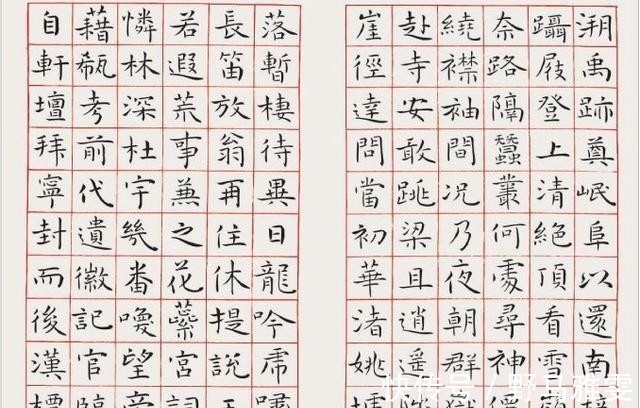 溯禹跡奠岷阜以還南
躡屐登上清絕頂看雪
奈路隔蠶叢何處尋神
繞襟袖間況乃夜朝群
赴寺安敢跳梁且逍遙
崖徑達問當初華渚姚
落暫棲待畢日龍吟虎嘯
長笛放翁再住休提說王
若遐荒事兼之花蘂宮詞
憐林深杜宇幾番喚望帝
藉瓻考前代遺徽記官臨
自軒壇拜寧封而後漢標
快传号 /